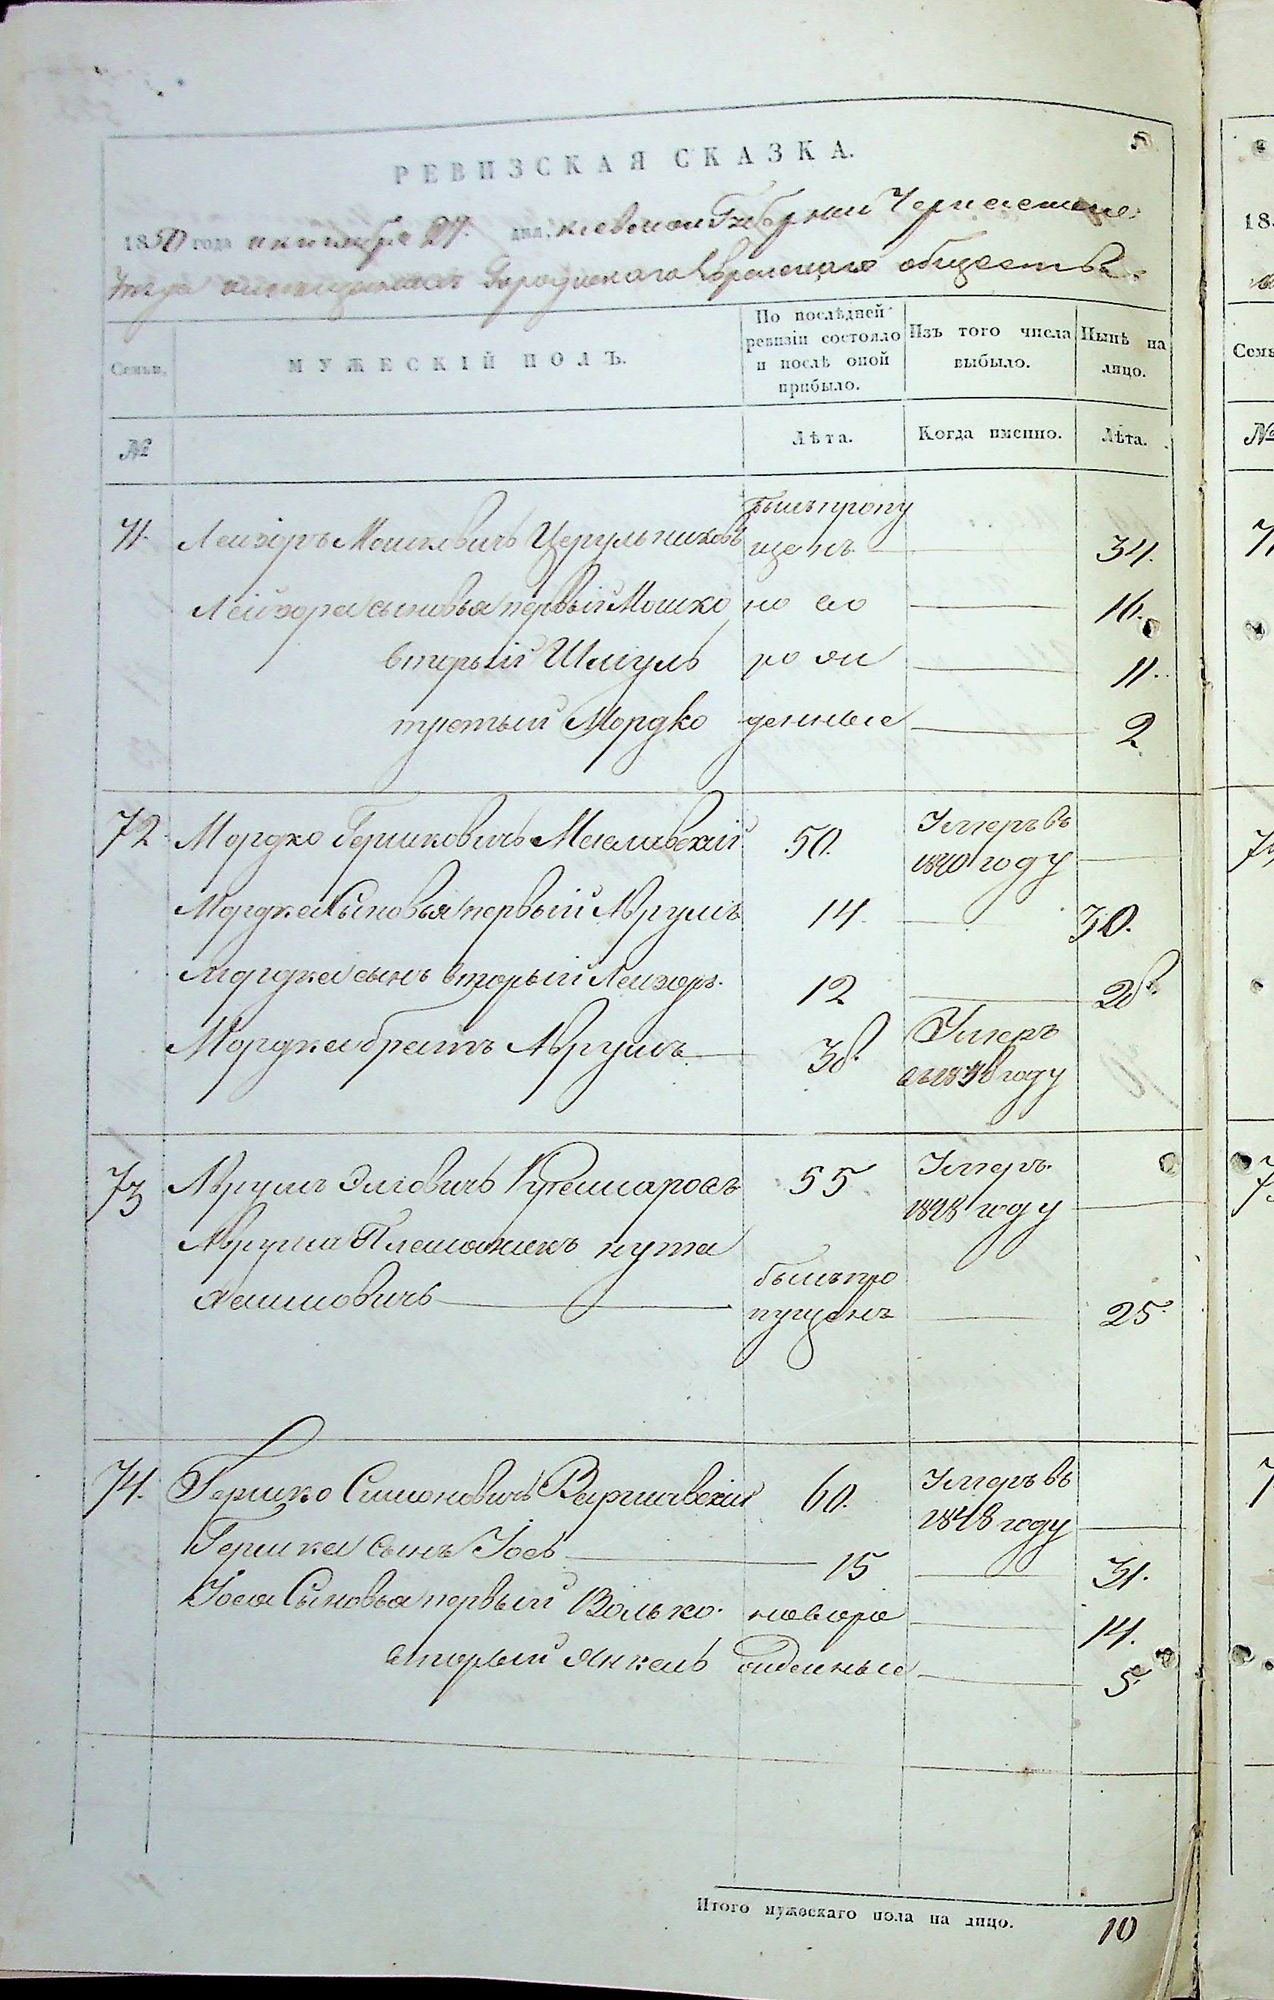 РЕВИЗСКАЯ СКАЗКА.
1850 года октября 27. дня, Киевской Губернии Черкаскаго
Уезда Городискаго Еврейскаго общества
Семьи.
МУЖЕСКІЙ ПОЛЪ.
По послѣдней ревизіи состояло и послѣ оной прибыло.
Изъ того числа выбыло.
Нынѣ на лицо.
№
Лѣта.
Когда именно.
Лѣта.
71. Лейзоръ Мошковичъ Церульниковъ былъ пропущенъ 34.
Лейзора сыновья первый Мошко по ело 16.
вторый Шмуль рожи 11.
третый Мордко денные 2
72 Мордко Гершковичъ 50. Умеръ въ 1840 году
Мордка Сыновья первый Аврумъ 14 30.
Мордка сынъ вторый Лейзоръ. 12 28.
Мордка братъ Аврумъ 38. Умеръ году
73 Аврумъ Элговичъ 55 Умеръ 1848 году
Аврума Племяникъ нута
былъ пропущенъ 25.
74. Гершко Симоновичъ Варшавскій 60. Умеръ въ 1848 году
Гершка сынъ Іосъ 15 31.
Іося Сыновья первый Волько. новоро 14.
вторый Янкель жденные 5.
Итого мужескаго пола на лицо. 10